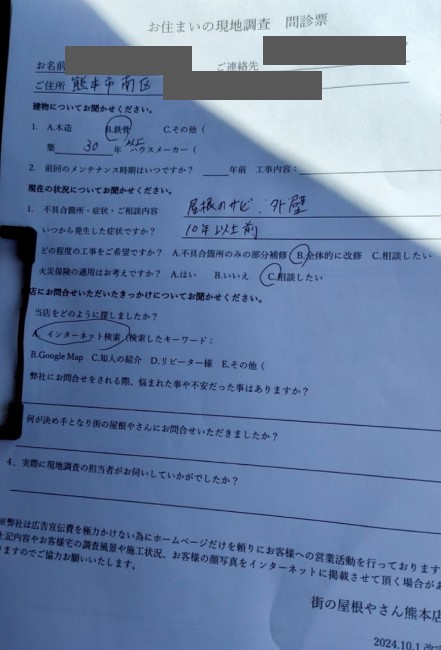 お住まいの現地調査　問診票
お名前
ご連絡先
ご住所 熊本市南区
建物についてお聞かせください。
1. A.木造　B.鉄骨　C.その他（
築 30 年 以上 ハウスメーカー（
2. 前回のメンテナンス時期はいつですか？ 年前 工事内容：
現在の状況についてお聞かせください。
1. 不具合箇所・症状・ご相談内容 屋根のサビ、外壁
いつから発生した症状ですか？ 10年以上前
どの程度の工事をご希望ですか？ A.不具合箇所のみの部分補修 B.全体的に改修 C.相談したい
火災保険の適用はお考えですか？ A.はい B.いいえ C.相談したい
店にお問合せいただいたきっかけについてお聞かせください。
当店をどのように探しましたか？
インターネット検索（検索したキーワード：
B.Google Map C.知人の紹介 D.リピーター様 E.その他（
弊社にお問合せをされる際、悩まれた事や不安だった事はありますか？
何が決め手となり街の屋根やさんにお問合せいただきましたか？
4. 実際に現地調査の担当者がお伺いしていかがでしたか？
※弊社は広告宣伝費を極力かけない為にホームページだけを頼りにお客様への営業活動を行っております
上記内容やお客様宅の調査風景や施工状況、お客様の顔写真をインターネットに掲載させて頂く場合が
りますのでご協力お願いいたします。
街の屋根やさん熊本店
2024.10.1 改